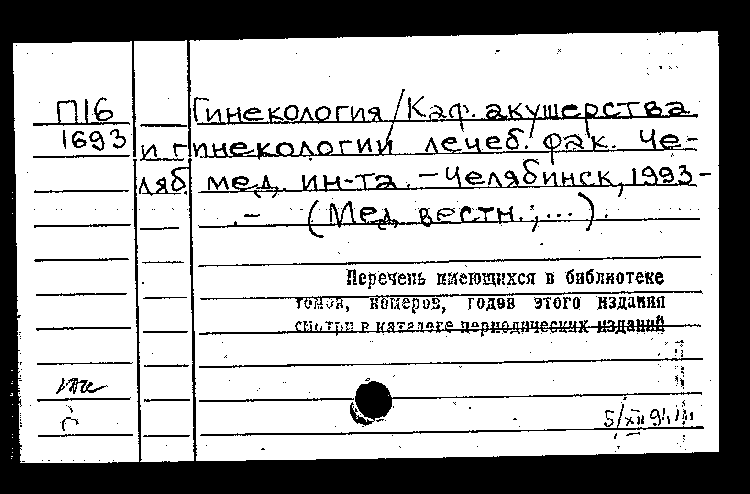 П16 Гинекология / Каф. акушерства
1693 и гинекологии лечеб. фак. Че-
ляб. мед. ин-та. – Челябинск, 1993-
. – (Мед. вестн.; ...).
Перечень имеющихся в библиотеке
томов, номеров, годов этого издания
смотри в каталоге периодических изданий
5/XII 94